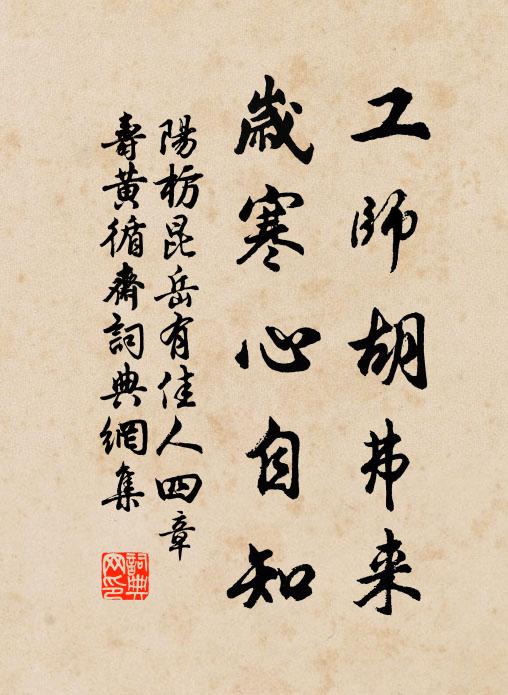 工師胡弗来
歲寒心自知
陽枋昆岳有佳人四章
壽黃循齋詞典網集
詞典
网印